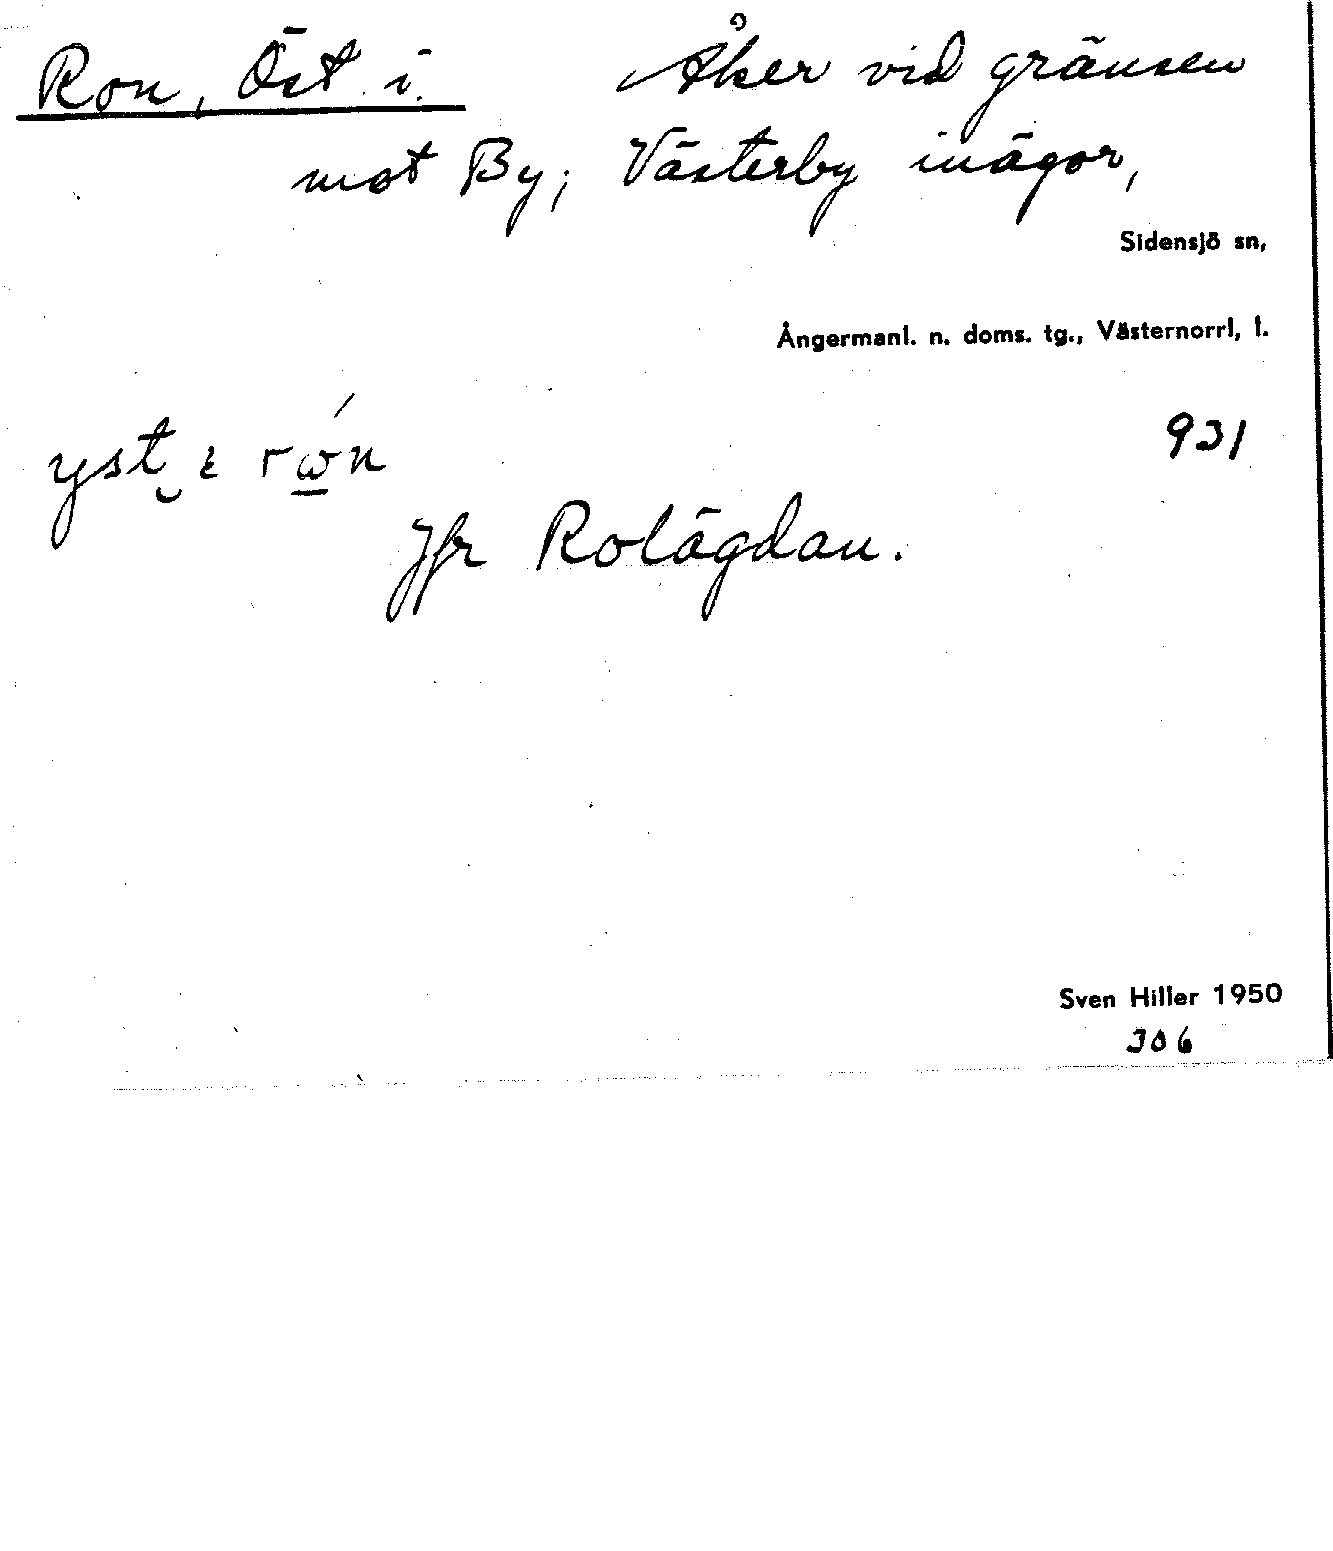 Ron, Öst i. Åker vid gränsen
mot By; Västerby inägor,
Sidensjö sn,
Ångermanl. n. doms. tg., Västernorrl, l.
931
Jfr Rolägdan.
Sven Hiller 1950
306